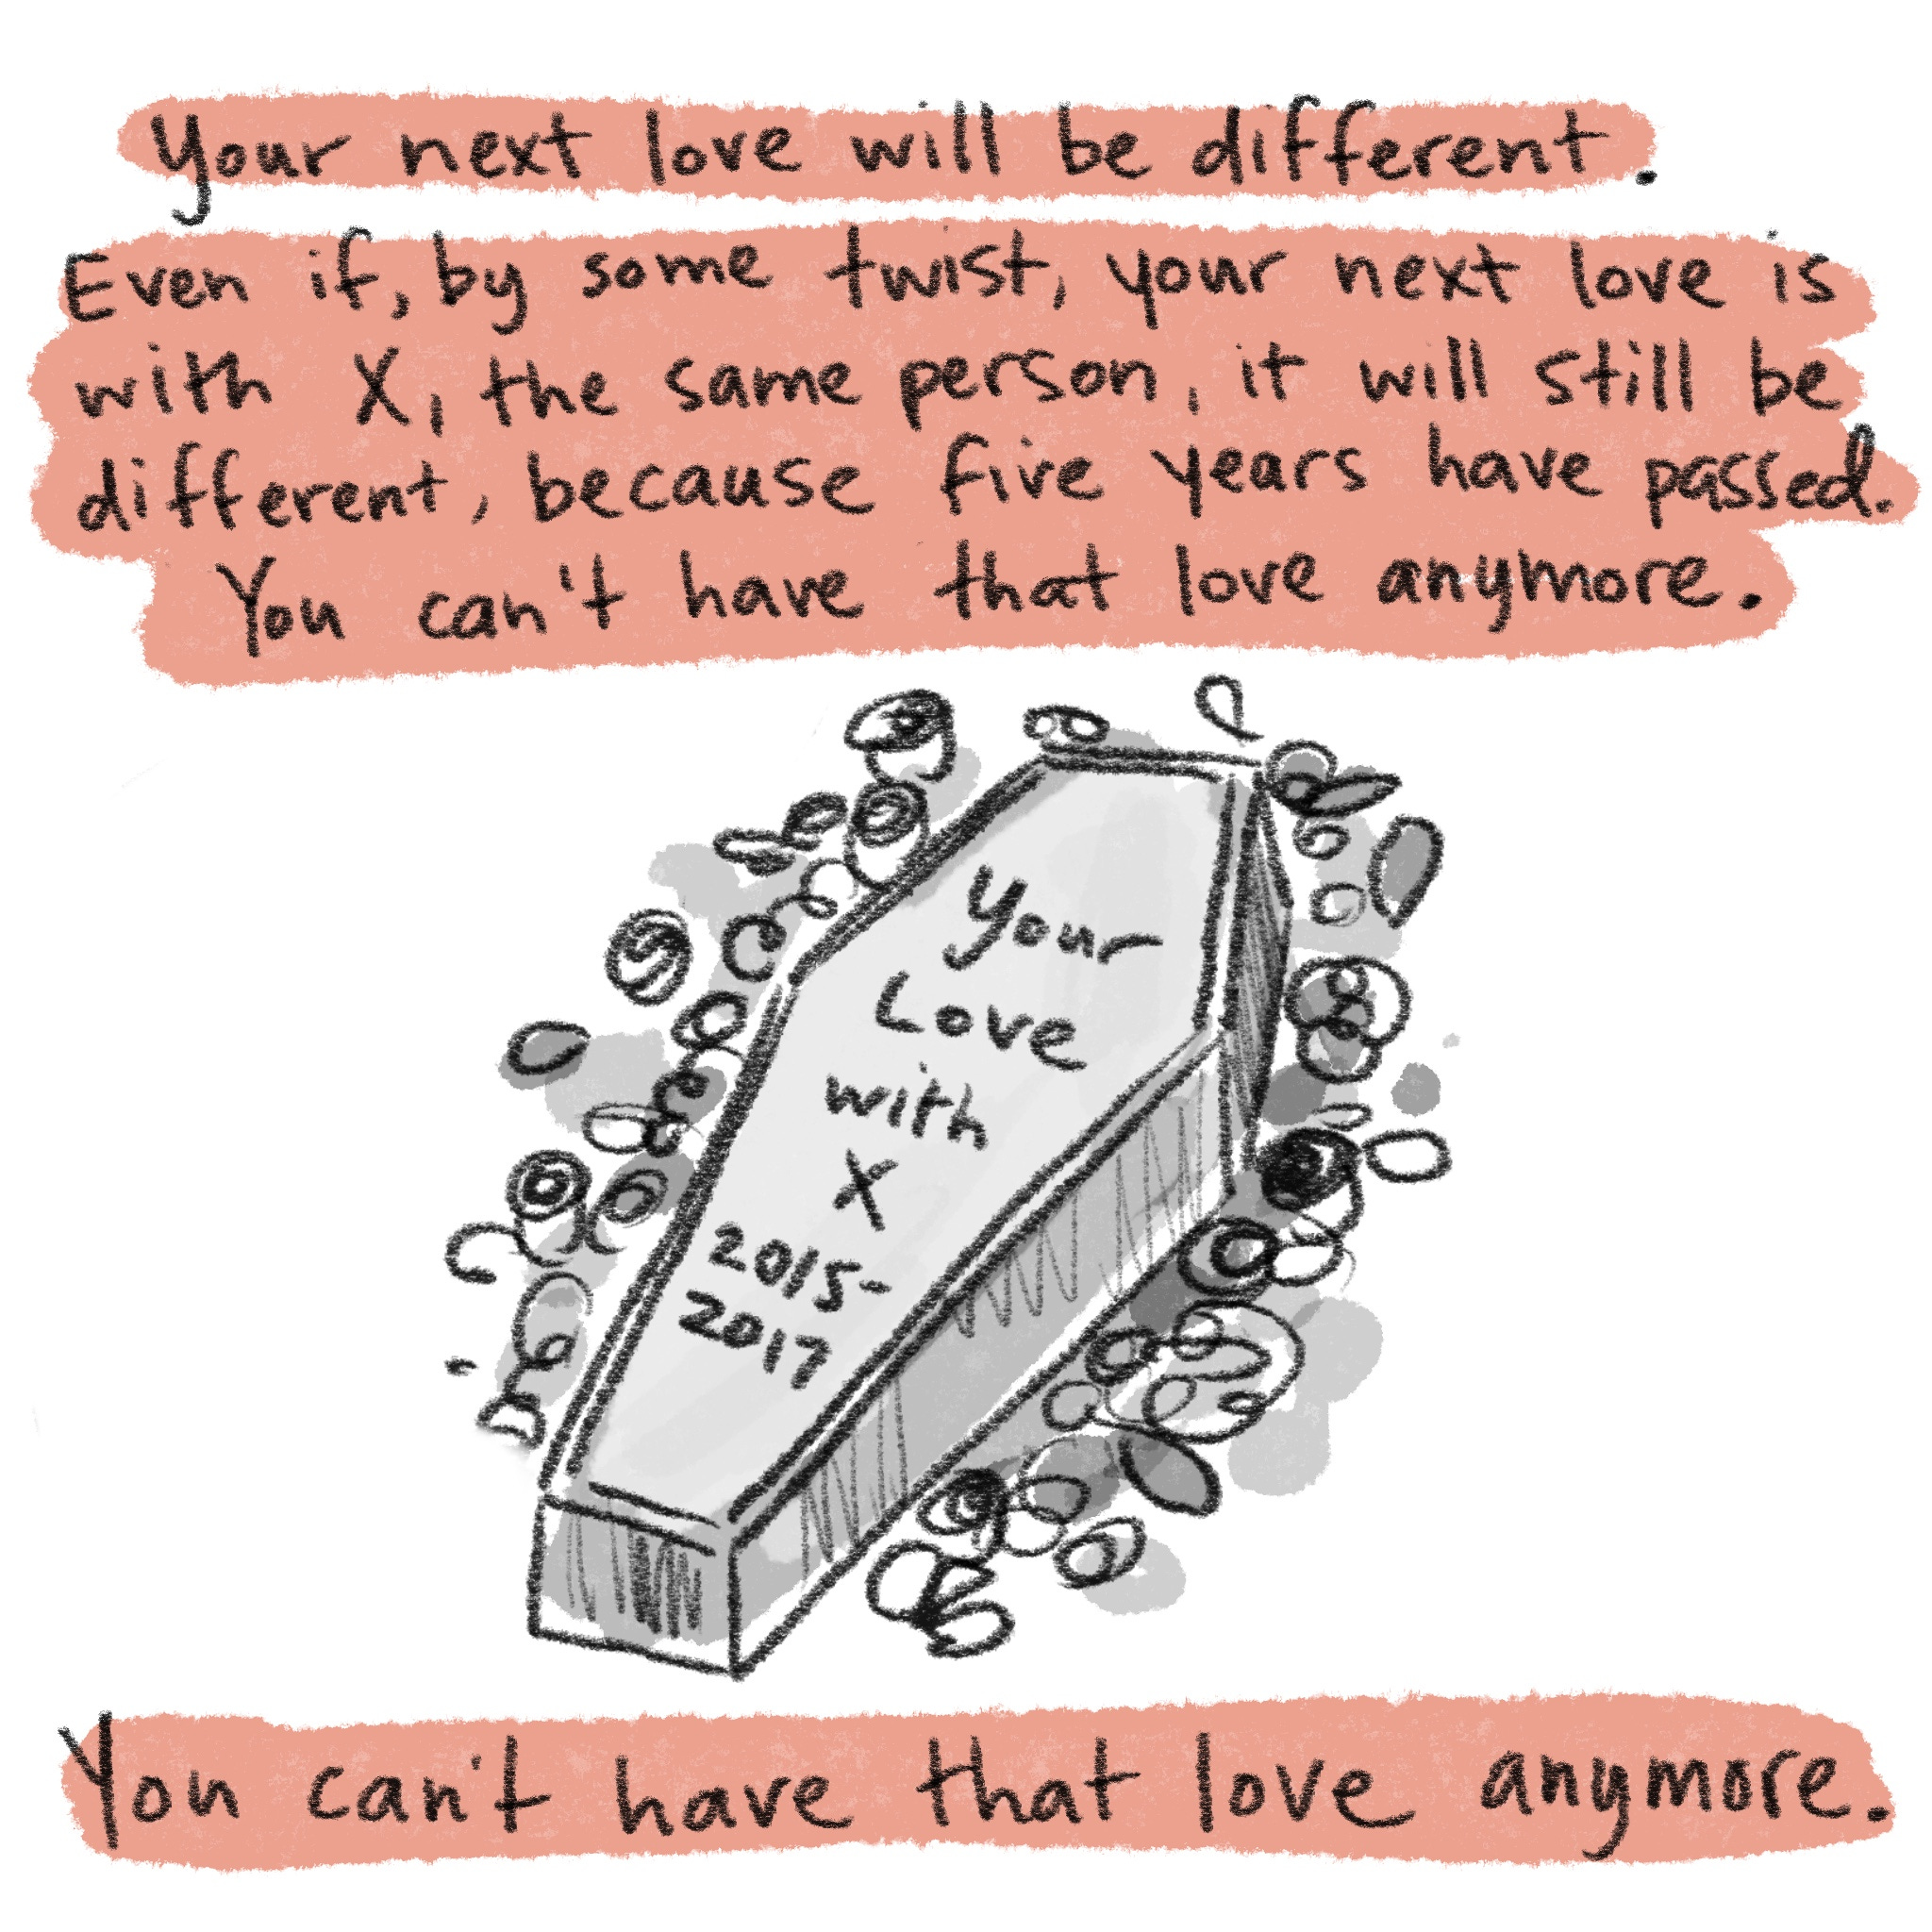 Your next love will be different.
Even if, by some twist, your next love is
with X, the same person, it will still be
different, because five years have passed.
You can't have that love anymore.
Your
Love
with
X
2015-
2017
You can't have that love anymore.